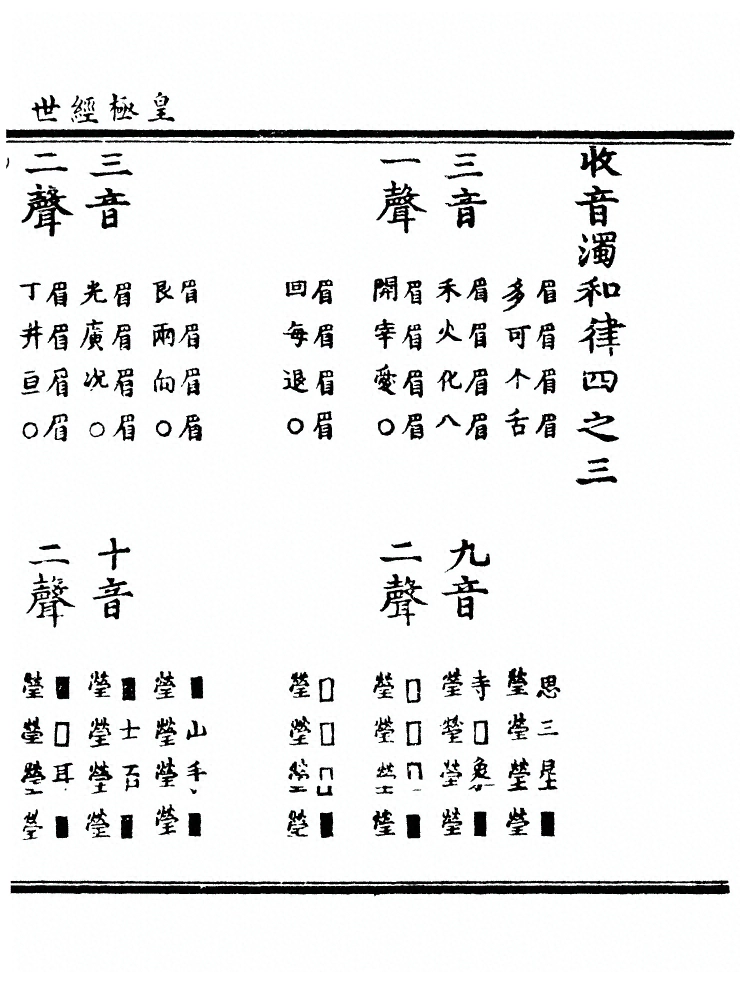 皇極經世
收音濁和律四之三
三音
一聲
眉眉眉眉
多可个舌
眉眉眉眉
禾火化八
眉眉眉眉
開宰愛○
眉眉眉眉
回每退○
九音
二聲
思三星■
瑩瑩瑩瑩
寺□象■
瑩瑩瑩瑩
□□□■
瑩瑩瑩瑩
□□□■
瑩瑩瑩瑩
三音
二聲
眉眉眉眉
良兩向○
眉眉眉眉
光廣况○
眉眉眉眉
丁井亘○
十音
二聲
■山手■
瑩瑩瑩瑩
■士石■
瑩瑩瑩瑩
■□耳■
瑩瑩瑩瑩